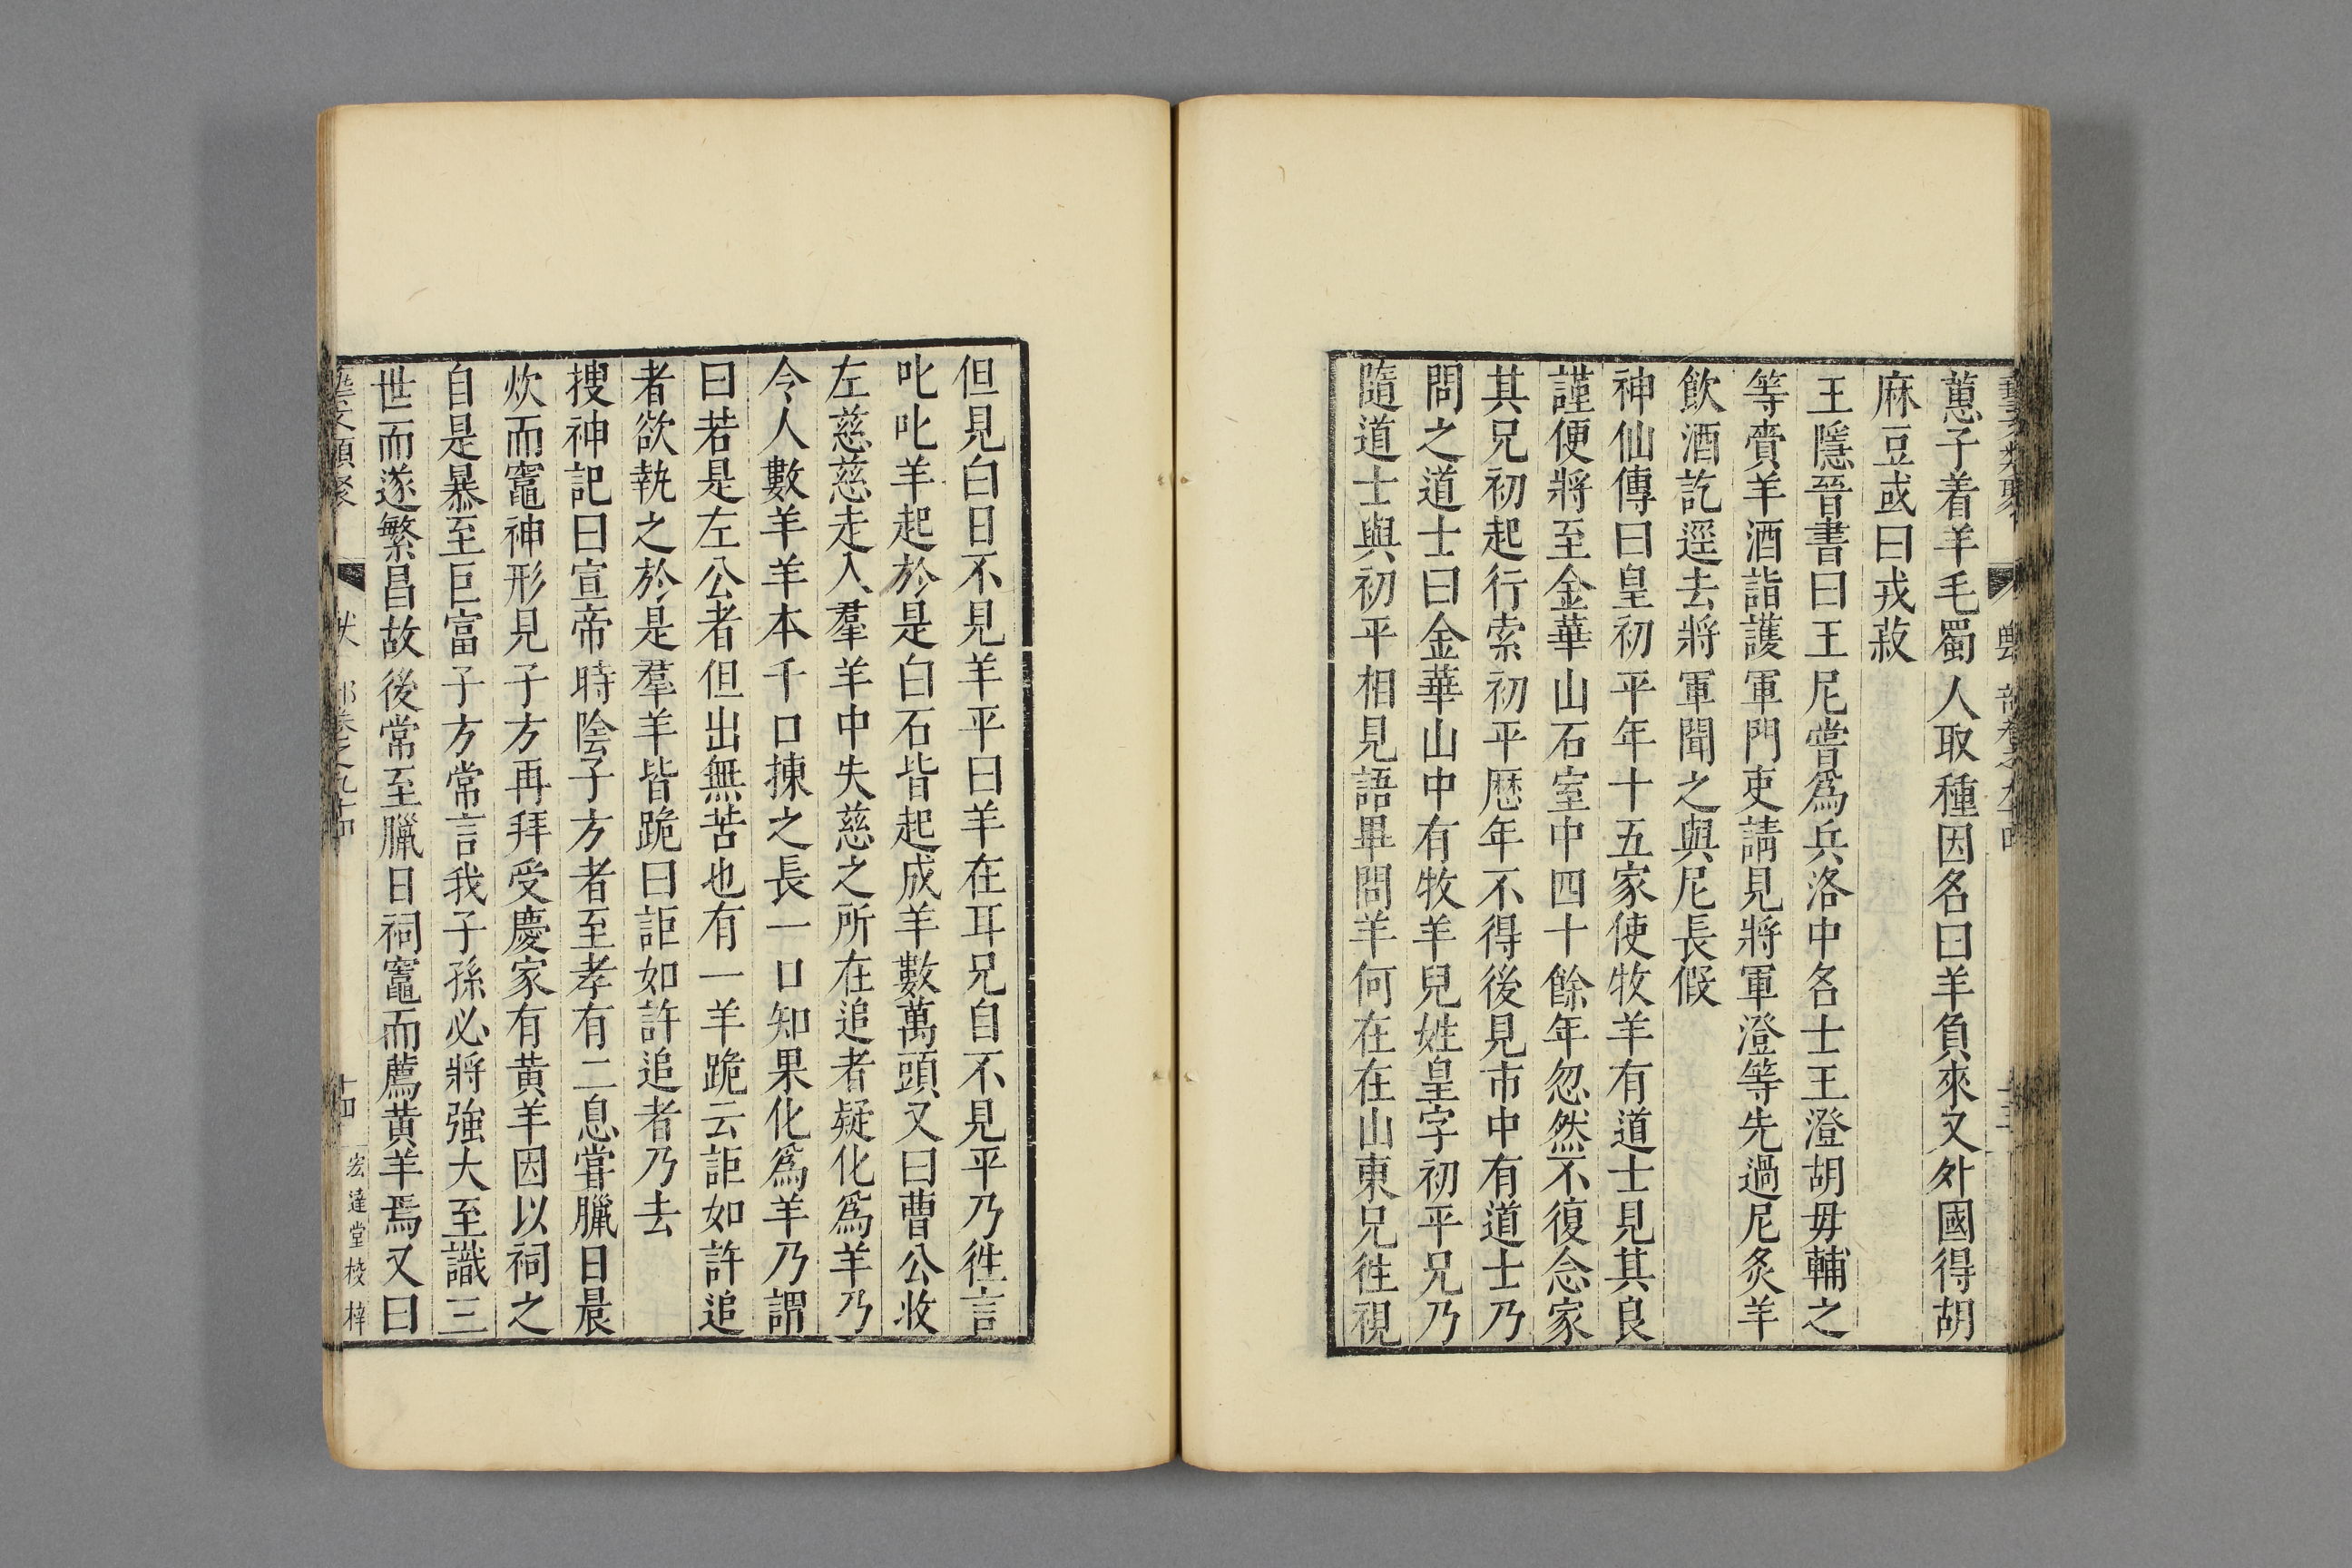 蔥子着羊毛蜀人取種因名曰羊負來又外國得胡
麻豆或曰戎菽
王隱晉書曰王尼嘗爲兵洛中名士王澄胡毋輔之
等賷羊酒詣護軍門吏請見將軍澄等先過尼炙羊
飲酒訖逕去將軍聞之與尼長假
神仙傳曰皇初平年十五家使牧羊有道士見其良
謹便將至金華山石室中四十餘年忽然不復念家
其兄初起行索初平歷年不得後見市中有道士乃
問之道士曰金華山中有牧羊兒姓皇字初平兄乃
隨道士與初平相見語畢問羊何在在山東兄徃視
但見白日不見羊平曰羊在耳兄自不見平乃徃言
叱叱羊起於是白石皆起成羊數萬頭又曰曹公收
左慈慈走入羣羊中失慈之所在追者疑化爲羊乃
令人數羊羊本千口揀之長一口知果化爲羊乃謂
曰若是左公者但出無苦也有一羊跪云詎如許追
者欲執之於是羣羊皆跪曰詎如許追者乃去
搜神記曰宣帝時陰子方者至孝有二息嘗臘日晨
炊而竈神形見子方再拜受慶家有黃羊因以祠之
自是暴至巨富子方常言我子孫必將強大至識三
世而遂繁昌故後常至臘日祠竈而薦黃羊焉又曰
獸部卷之九十四
十四
宏達堂校梓